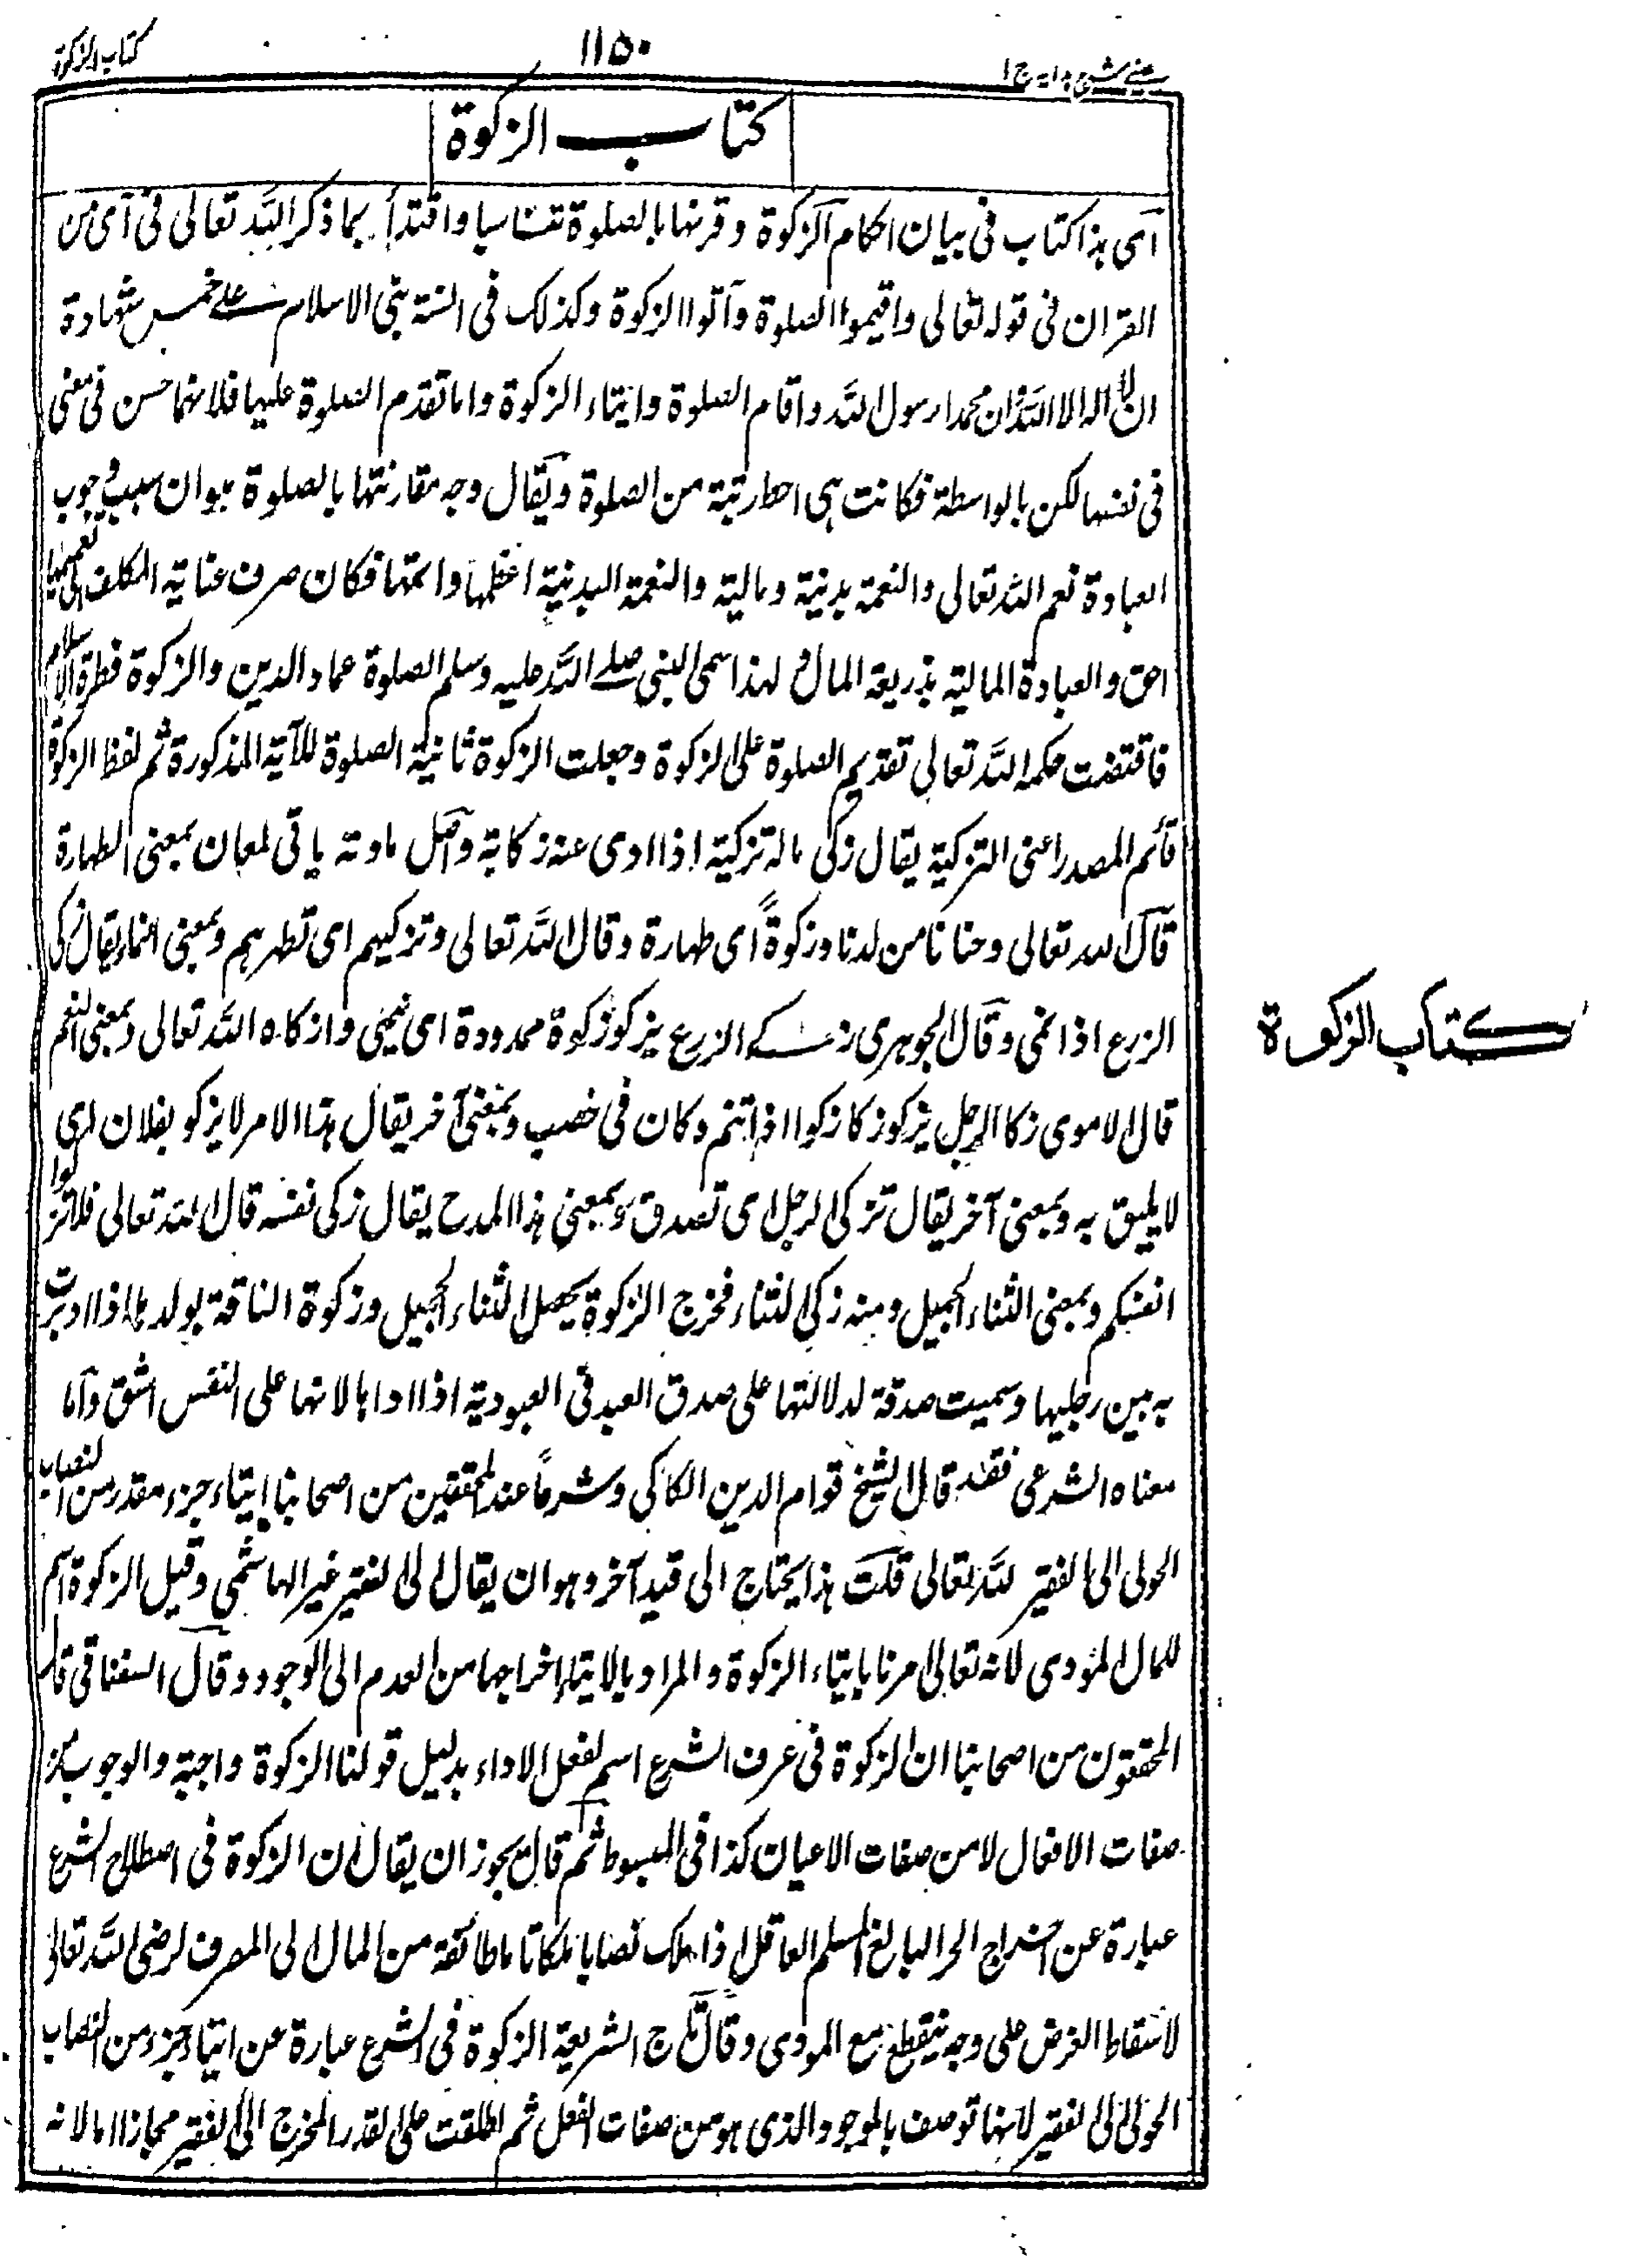 كتاب الزكوة
١١٥٠
عيني شرح هدايه ج ١
كتاب الزكوة
آى هذا كتاب فى بيان احكام الزكوة وقرنها بالصلوة تناسبا واقتدأ بما ذكر الله تعالى فى آى من
القران فى قوله تعالى واقيموا الصلوة وآتوا الزكوة وكذلك فى السنة بنى الاسلام على خمس شهادة
ان لا اله الا الله وان محمدا رسول الله واقام الصلوة وايتاء الزكوة واما تقدم الصلوة عليها فلانها حسن فى معنى
فى نفسها لكن بالواسطة فكانت هى احط رتبة من الصلوة ويقال وجه مقارنتها بالصلوة هو ان سبب وجوب
العبادة نعم الله تعالى والنعمة بدنية ومالية والنعمة البدنية اعظمها واتمها فكان صرف عناية المكلف الى تعميمها
احق والعبادة المالية بذريعة المال ولهذا سمى النبى صلے الله عليه وسلم الصلوة عماد الدين والزكوة قطرة الاسلام
فاقتضت حكمة الله تعالى تقديم الصلوة على الزكوة وجعلت الزكوة ثانية الصلوة للآية المذكورة ثم لفظ الزكوة
قائم المصدر اعنى التزكية يقال زكى ماله تزكية اذا ادى عنه زكاته واصل مادته ياتى لمعان بمعنى الطهارة
قال الله تعالى وحنانا من لدنا وزكوةً اى طهارة وقال الله تعالى وتزكيهم اى تطهرهم وبمعنى النماء يقال زكى
الزرع اذا نمى وقال الجوهرى زكے الزرع يزكو زكوة ممدودة اى ينمى وازكاه الله تعالى وبمعنى التنعم
قال الاموى زكا الرجل يزكو زكا زكوا اذا تنعم وكان فى خصب وبمعنى آخر يقال هذا الامر لا يزكو بفلان اى
لا يليق به وبمعنى آخر يقال تزكى الرجل اى تصدق وبمعنى هذا المدح يقال زكى نفسه قال الله تعالى فلا تزكوا
انفسكم وبمعنى الثناء الجميل ومنه زكى الثناء فخرج الزكوة يحصل الثناء الجميل وزكوة الناقة بولدها اذا ادبرت
به بين رجليها وسميت صدقة لدلالتها على صدق العبد فى العبودية اذا اداها لانها على النفس اشق واما
معناه الشرعى فقد قال الشيخ قوام الدين الكاكى وشرعاً عند المحققين من اصحابنا ايتاء جزء مقدر من النصاب
الحولى الى الفقير لله تعالى قلت هذا يحتاج الى قيد آخر وهو ان يقال الى الفقير غير الهاشمى وقيل الزكوة اسم
للمال المؤدى لانه تعالى امرنا بايتاء الزكوة والمراد بالايتاء اخراجها من العدم الى الوجود وقال السغناقى قال
المحققون من اصحابنا ان الزكوة فى عرف الشرع اسم لفعل الاداء بدليل قولنا الزكوة واجبة والوجوب من
صفات الافعال لا من صفات الاعيان كذا فى المبسوط ثم قال يجوز ان يقال ان الزكوة فى اصطلاح الشرع
عبارة عن اخراج الحر البالغ المسلم العاقل اذا ملك نصابا ملكا تاما طائفة من المال الى المصرف لرضى الله تعالى
لاسقاط الفرض على وجه ينقطع نفع المودى وقال تاج الشريعة الزكوة فى الشرع عبارة عن ايتاء جزء من النصاب
الحولى الى الفقير لانها توصف بالوجود الذى هو من صفات الفعل ثم اطلقت على القدر المخرج الى الفقير مجازا اما لانه
كتاب الزكوة